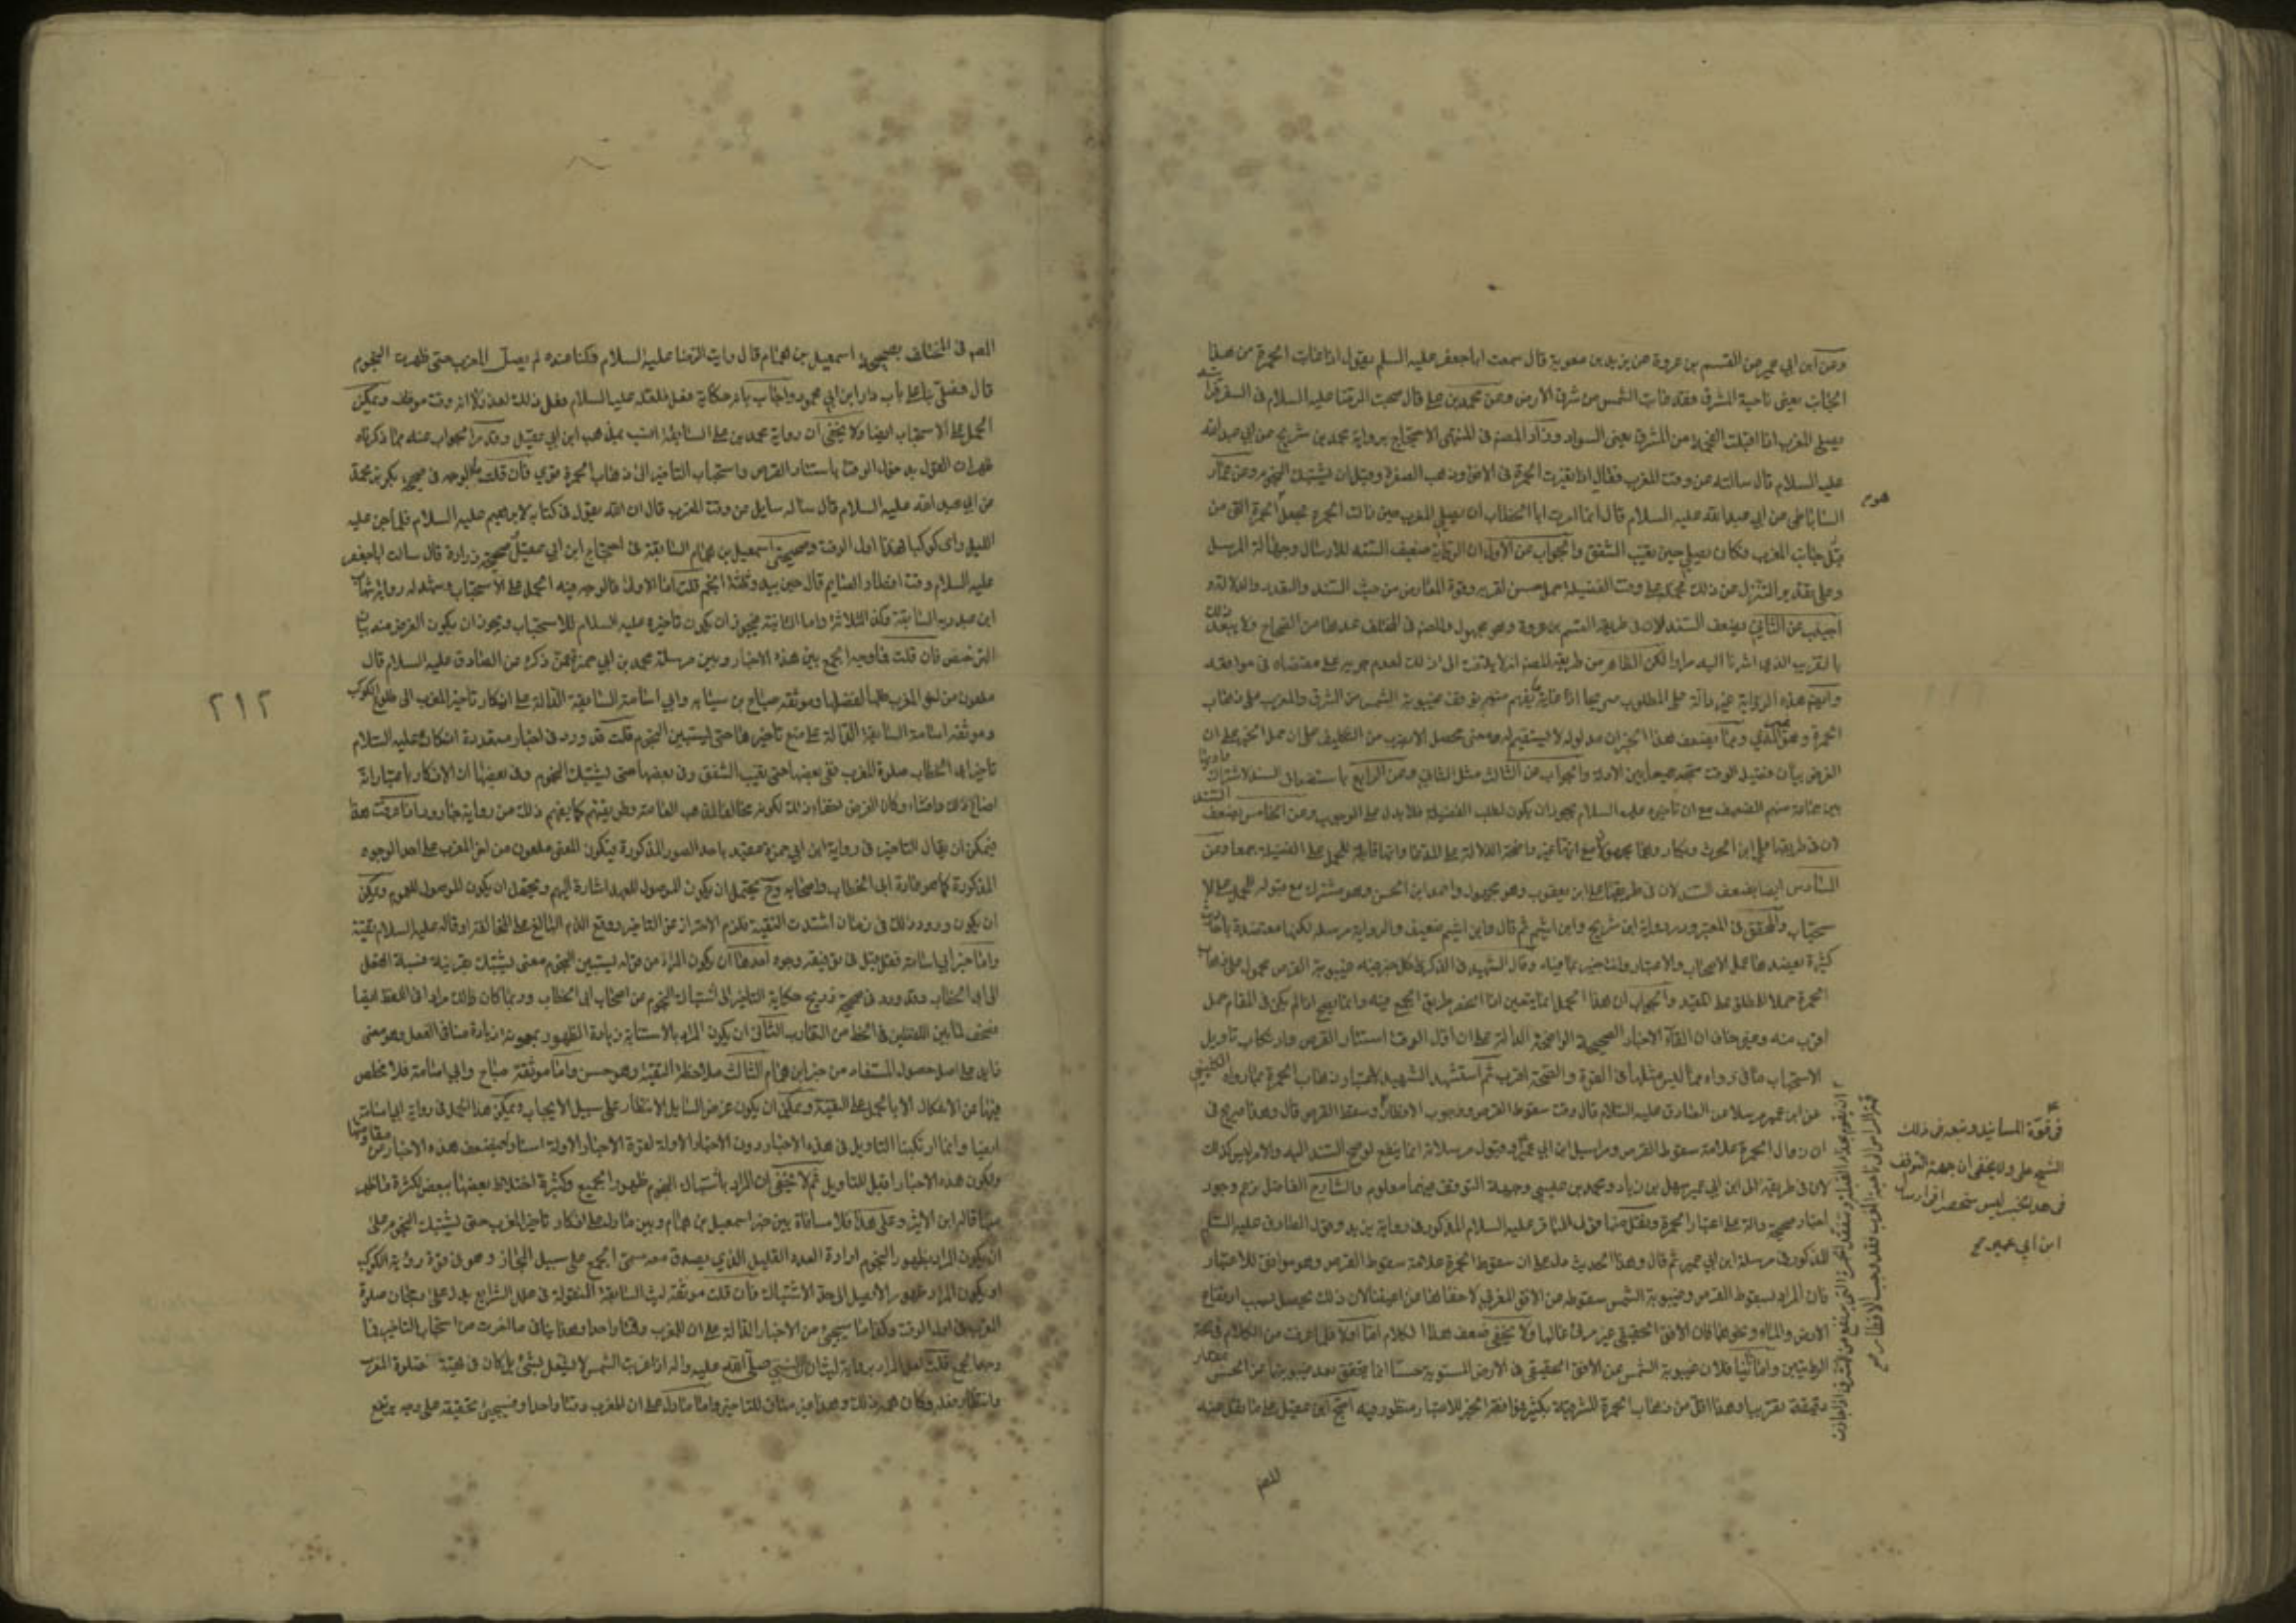 وعن ابن ابي عمير عن القسم بن عروة عن بريد بن معوية قال سمعت ابا جعفر عليه السلم يقول اذا غابت الحمرة من هذا
الجانب يعنى ناحية المشرق فقد غابت الشمس من شرق الارض وعن محمد بن على قال صحبت الرضا عليه السلام فى السفر فرأيته
يصلى المغرب اذا اقبلت الفحمة من المشرق يعنى السواد وزاد المصنف فى المنتهى الاحتجاج برواية محمد بن شريح عن ابي عبد الله
عليه السلام قال سالته عن وقت المغرب فقال اذا تغيرت الحمرة فى الافق وذهب الصفرة وقبل ان يشتبك النجوم وعن عمار
الساباطى عن ابي عبد الله عليه السلام قال انما امرت ابا الخطاب ان يصلى المغرب حين زالت الحمرة فجعل الحمرة التى من
قبل المغرب وكان يصلى حين يغيب الشفق والجواب عن الاول ان الرواية ضعيف السند للارسال وجهالة المرسل
وعلى تقدير التنزل عن ذلك محمول على وقت الفضيلة حملا حسن لقربه وقوة المعارض من حيث السند والعدد والدلالة و
اجيب عن الثاني بضعف السند لان فى طريقه القسم بن عروة وهو مجهول والمصنف فى المختلف عدها من الصحاح ولا يبعد ذلك
بالتقريب الذى اشرنا اليه مرارا لكن الظاهر من طريقة المصنف انه لا يلتفت الى ذلك لعدم جريه على مقتضاه فى مواقعه
وايضا هذه الرواية غير دالة على المطلوب صريحا اذ غاية ما يفهم منهم توقف غيبوبة الشمس من الشرق والمغرب على ذهاب
الحمرة وهو غير المدعى ومما يضعف هذا الخبر ان مدلوله لا يستقيم
الغرض بيان فضيلة الوقت متجه جمعا بين الادلة والجواب عن الثالث مثل الثاني وعن الرابع باستضعاف السند لاشتراك
مع ان تاخيره عليه السلام يجوز ان يكون لطلب الفضيلة فلا يدل على الوجوب وعن الخامس بضعف السند
لان فى طريقها على ابن الحرث وبكار وهما مجهولان مع انها غير واضحة الدلالة على المدعا وانها قابلة للحمل على الفضيلة جمعا وعن
السادس ايضا بضعف السند لان فى طريقها على بن يعقوب وهو مجهول واحمد ابن الحسن وهو مشترك مع قبوله للحمل على الا
ستحباب والمحقق فى المعتبر اورد رواية ابن شريح وابن اشيم ثم قال وابن اشيم ضعيف والرواية مرسلة لكنها معتضدة باحاديث
كثيرة يعضدها عمل الاصحاب والاعتبار وانت خبير بما فيه وقال الشهيد فى الذكرى كل خبر فيه غيبوبة القرص محمول على ذهاب
الحمرة حملا للمطلق على المقيد والجواب ان هذا الحمل انما يتعين اذا انحصر طريق الجمع فيه وانما يصح اذا لم يكن فى المقام حمل
اقرب منه وغير خاف ان القاء الاخبار الصحيحة الواضحة الدالة على ان اول الوقت استتار القرص وارتكاب تاويل
الاستحباب فى رواه مما ليس مثلها فى القوة والصحة اقرب ثم استشهد الشهيد لاعتبار ذهاب الحمرة بما رواه الكلينى
عن ابن ابي عمير مرسلا عن الصادق عليه السلام قال وقت سقوط القرص ووجوب الافطار وسقط القرص قال وهذا صريح فى
ان زوال الحمرة علامة سقوط القرص ومراسيل ابن ابي عمير وقبول مرسلاته انما ينفع لو صح السند اليه والامر ليس كذلك
لان فى طريقه الى ابن ابي عمير سهل بن زياد ومحمد بن عيسى وجهة التوقف فيهما معلوم والشارح الفاضل زعم وجود
اخبار صحيحة دالة على اعتبار الحمرة ونقل منها قول الباقر عليه السلام المذكور فى رواية بريد وقول الصادق عليه السلم
المذكور فى مرسلة ابن ابي عمير ثم قال وهذا الحديث يدل على ان سقوط الحمرة علامة سقوط القرص وهو موافق للاعتبار
فان المراد بسقوط القرص وغيبوبة الشمس سقوطه عن الافق المغربى لا خفاها عن اعيننا لان ذلك يحصل بسبب ارتفاع
الارض والماء ونحوهما فان الافق الحقيقى غير مرئى غالبا ولا يخفى ضعف هذا الكلام اما اولا فلما عرفت من الكلام فى صحة
الروايتين واما ثانيا فلان غيبوبة الشمس عن الافق الحقيقى فى الارض المستوية حسا انما يتحقق بعد غيبوبتها عن الحس بمقدار
دقيقة تقريبا وهذا اقل من ذهاب الحمرة المشرقية بكثير فموافقة الخبر للاعتبار منظور فيه احتج ابن عقيل على ما نقل عنه
المصنف
فى قوة المسانيد وتبعه فى ذلك
الشيخ على ولا يخفى ان جهة التوقف
فى هذا الخبر ليس منحصرا فى ارسال
ابن ابي عمير
المصنف فى المختلف بصحيحة اسمعيل بن همام قال رايت الرضا عليه السلام وكنا عنده لم يصل المغرب حتى ظهرت النجوم
قال فصلى بنا على باب دار ابن ابي محمود والجواب بانه حكاية فعل فلعله عليه السلام فعل ذلك لعذر لا انه وقت موظف ويمكن
الحمل على الاستحباب ايضا ولا يخفى ان رواية محمد بن على السابقة انسب بمذهب ابن ابي عقيل وقد مر الجواب عنه مما ذكرناه
ظهر ان القول بدخول الوقت باستتار القرص واستحباب التاخير الى ذهاب الحمرة قوي فان قلت ما الوجه فى صحيحة بكر بن محمد
عن ابي عبد الله عليه السلام قال ساله سايل عن وقت المغرب قال ان الله يقول فى كتابه لابراهيم عليه السلام فلما جن عليه
الليل راى كوكبا فهذا اول الوقت وصحيحة اسمعيل بن همام السابقة فى احتجاج ابن ابي عقيل وصحيحة زرارة قال سالت ابا جعفر
عليه السلام وقت افطار الصايم قال حين يبدو ثلثة انجم قلت اما الاولى فالوجه فيه الحمل على الاستحباب ويشهد له رواية شهاب
ابن عبد ربه السابقة وكذا الثالثة واما الثانية فيجوز ان يكون تاخيره عليه السلام للاستحباب ويجوز ان يكون الغرض منه بيان
الترخص فان قلت فما وجه الجمع بين هذه الاخبار وبين مرسلة محمد بن ابي حمزة عمن ذكره عن الصادق عليه السلام قال
ملعون من اخر المغرب طلبا لفضلها وموثقة صباح بن سيابه وابي اسامة السابقة الدالة على انكار تاخير المغرب الى طلوع الكوكب
وموثقة اسامة السابقة الدالة على منع تاخيرها حتى يستبين النجوم قلت قد ورد فى اخبار متعددة انكاره عليه السلام
تاخير ابى الخطاب صلوة المغرب ففى بعضها حتى يغيب الشفق وفى بعضها حتى يشتبك النجوم وفى بعضها ان الانكار باعتبار انه
اضاع ذلك وافشاه وكان الغرض اخفاء ذلك لكونه مخالفا لمذهب العامة وطريقتهم كما يفهم ذلك من رواية جارود اذا عرفت هذا
فيمكن ان يقال التاخير فى رواية ابن ابي حمزة مقيد باحد الصور المذكورة فيكون المعنى ملعون من اخر المغرب على احد الوجوه
المذكورة كما هو عادة ابى الخطاب واصحابه وح يحتمل ان يكون الموصول للعهد اشارة اليهم ويحتمل ان يكون الموصول للعموم ويمكن
ان يكون ورود ذلك فى زمان اشتدت التقية فلزم الاحتراز عن التاخير ووقع الذم البالغ على المخالفة او قاله عليه السلام تقية
واما خبر ابي اسامة فقد قيل فى توفيقه وجوه احدها ان يكون المراد من قوله يستبين النجوم معنى يشتبك بقرينة نسبة الفعل
الى ابى الخطاب وقد ورد فى صحيحة ذريح حكاية التاخير الى اشتباك النجوم من اصحاب ابى الخطاب وربما كان ذلك مرادا فى اللفظ ايضا
فصحف لما بين اللفظين فى الخط من التقارب الثانى ان يكون المراد بالاستبانة زيادة الظهور بمعونة زيادة مباني الفعل وهو معنى
زايد على اصل حصول المستفاد من خبر ابن همام الثالث ملاحظة التقية وهو حسن واما موثقة صباح وابي اسامة فلا مخلص
فيها عن الاشكال الا بالحمل على التقية ويمكن ان يكون غرض السايل الانتظار على سبيل الايجاب ويمكن هذا الحمل فى رواية ابي اسامة
ايضا وانما ارتكبنا التاويل فى هذه الاخبار دون الاخبار الاولة لقوة الاخبار الاولة اسنادا وضعف هذه الاخبار عن مقاومتها
ولكون هذه الاخبار اقبل للتاويل ثم لا يخفى ان المراد باشتباك النجوم ظهور الجميع وكثرة اختلاط بعضها ببعض لكثرة ما ظهر
منها قاله ابن الاثير وعلى هذا فلا منافاة بين خبر اسمعيل بن همام وبين ما دل على انكار تاخير المغرب حتى يشتبك النجوم على
ان يكون المراد بظهور النجوم ارادة العدد القليل الذى يصدق معه مسمى الجمع على سبيل المجاز وهو فى قوة رؤية الكوكب
او يكون المراد ظهور لا يصل الى حد الاشتباك فان قلت موثقة ليث السابقة المنقولة فى علل الشرايع يدل على رجحان صلوة
المغرب فى اول الوقت وكذا ما سيجئ من الاخبار الدالة على ان للمغرب وقتا واحدا وهذا ينافى ما قررت من استحباب التاخير فما
وجه الجمع قلت لعل المراد برواية ليث ان النبى صلى الله عليه واله اذا غربت الشمس لا يشغل بشئ بل كان فى تهيئة صلوة المغرب
وانتظار فعله وكان همه ذلك وهذا غير مناف للتاخير واما ما دل على ان للمغرب وقتا واحدا فسيجئ تحقيقه على وجه يرتفع
٢١٢